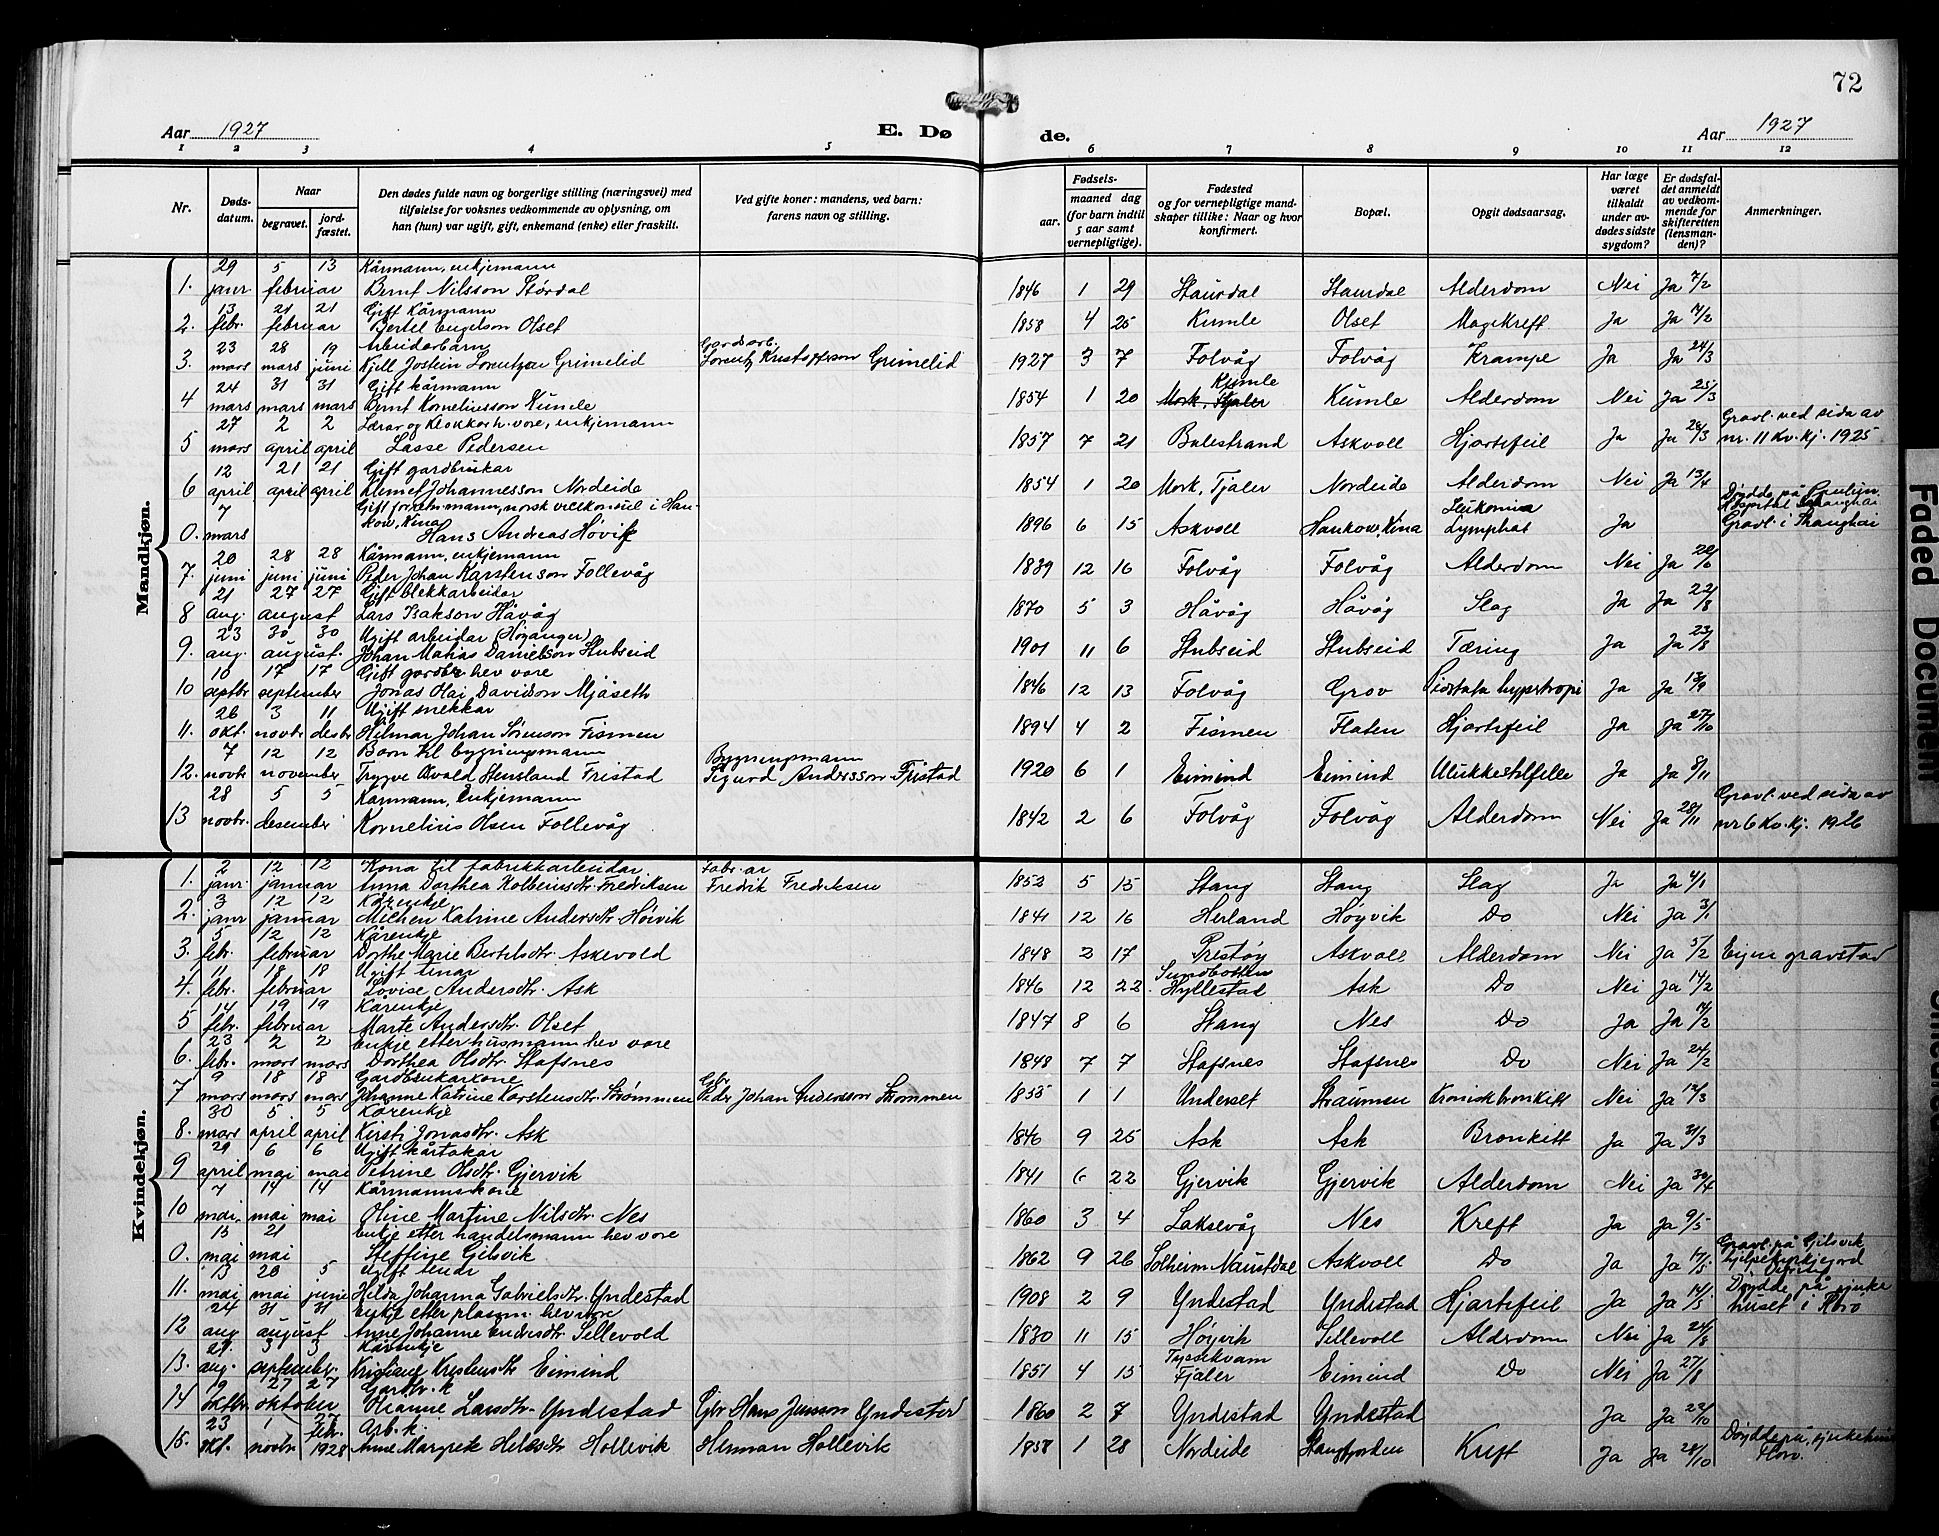 72
Aar 1927
E. Dø
de.
Aar 1927
1 2 3 4 5 6 7 8 9 10 11 12
Nr.
Døds-
datum.
Naar
begravet.
jord-
fæstet.
Den dødes fulde navn og borgerlige stilling (næringsvei) med
tilføielse for voksnes vedkommende av oplysning, om
han (hun) var ugift, gift, enkemand (enke) eller fraskilt.
Ved gifte koner: mandens, ved barn:
farens navn og stilling.
Fødsels-
aar.
maaned dag
(for barn indtil
5 aar samt
vernepligtige).
Fødested
og for vernepligtige mand-
skaper tillike: Naar og hvor
konfirmert.
Bopæl.
Opgit dødsaarsag.
Har læge
været
tilkaldt
under av-
dødes sidste
sygdom?
Er dødsfal-
det anmeldt
av vedkom-
mende for
skifteretten
(lensman-
den)?
Anmerkninger.
Mandkjøn.
29 5 13 Kårmann, enkjemann
1. janr februar Bernt Nilsson Størdal 1846 1 29 Staurdal Staurdal Alderdom Nei Ja 7/2
13 21 21 Gift Kårmann
2. febr. februar Bertel Engelson Olset 1858 4 25 Kumle Olset Magekreft Ja Ja 14/2
23 28 19 Arbeidarbarn Gardarb.
3. mars mars juni Kjell Jostein Lorentzen Grimelid Lorentz Kristofferson Grimelid 1927 3 7 Folvåg Folvåg Krampe Ja Ja 24/3
24 31 31 Gift kårmann Kumle
4 mars mars mars Bernt Korneliusson Kumle 1854 1 20 Mork, Fjaler Kumle Alderdom Nei Ja 25/3
27 2 2 Lærar og Klokkar h. vore, enkjemann Gravl. ved sida av
5 mars april april Lasse Pedersen 1857 7 21 Balestrand Askvoll Hjartefeil Ja Ja 28/3 nr. 11 Kv. kj. 1925
12 21 21 Gift gardbrukar
6 april april april Klemet Johannesson Nordeide 1854 1 20 Mork, Fjaler Nordeide Alderdom Nei Ja 13/4
7 Gift forretn.mann, norsk visekonsul i Han- Leukemia Døydde på
kow, Kina Hospital Shanghai
0. mars Hans Andreas Høvik 1896 6 15 Askvoll Hankow, Kina Lymphat Ja Gravl. i Shanghai
20 28 28 Kårmann, enkjemann
7. juni juni juni Peder Johan Karstenson Follevåg 1839 12 16 Folvåg Folvåg Alderdom Nei Ja 22/6
21 27 27 Gift blekkarbeidar
8 aug. august Lars Isakson Håvåg 1870 5 3 Håvåg Håvåg Slag Ja Ja 22/8
23 30 30 Ugift arbeidar (Høyanger)
9. aug. august. Johan Matias Danielson Stubseid 1901 11 6 Stubseid Stubseid Tæring Ja Ja 23/8
10 17 17 Gift gardbr hev vore
10 septbr september Jonas Olai Davidson Mjåseth 1846 12 13 Folvåg Grov Prostata hypertropi Ja Ja 13/9
26 3 11 Ugift snekkar
11. okt. novbr desbr Hilmar Johan Sørenson Fismen 1894 4 2 Fismen Flaten Hjartefeil Ja Ja 27/10
7 12 12 Born til bygningsmann Bygningsmann
12. novbr november Trygve Osvald Hensland Fristad Sigurd Andersson Fristad 1920 6 1 Eimind Eimind Ulukkestilfelle Ja Ja 8/11
28 5 5 Kårmann, Enkjemann Gravl. ved sida av
13 novbr. desember Kornelius Olsen Follevåg 1842 2 6 Folvåg Folvåg Alderdom Nei Ja 28/11 nr 6 Kv. kj. 1926
Kvindekjøn.
2 12 12 Kona til fabrikkarbeidar Fabr. ar
1. janr januar Anna Dorthea Kolbeinsdtr. Fredriksen Fredrik Fredriksen 1852 5 15 Stang Stang Slag Ja Ja 4/1
3 12 12 Kårenkje
2. janr januar Michen Katrine Andersdtr Høivik 1841 12 16 Herland Høyvik Do Nei Ja 3/1
5 12 12 Kårenkje
3. febr. februar Dorthe Marie Bertelsdtr. Askevold 1848 2 17 Prestøy Askvoll Alderdom Nei Ja 5/2 Eigen gravstad
11 18 18 Ugift tenar Sundbotten
4. febr. februar Lovise Andersdtr. Ask 1846 12 22 Hyllestad Ask Do Nei Ja 14/2
14 19 19 Kårenkje
5 febr. februar Marte Andersdtr. Olset 1847 8 6 Stang Nes Do Ja Ja 14/2
23 2 2 Enkje etter husmann hev vore
6. febr. mars mars Dorthea Olsdtr. Stafsnes 1848 7 7 Stafsnes Stafsnes Do Nei Ja 24/2
9 18 18 Gardbrukarkone Gbr.
7 mars mars mars Johanne Katrine Karstensdtr. Strømmen Peder Johan Andersson Strømmen 1855 1 1 Underset Straumen Kronisk bronkitt Nei Ja 12/3
30 5 5 Kårenkje
8. mars april april Kirsti Jonasdtr. Ask 1846 9 25 Ask Ask Bronkitt Ja Ja 31/3
29 6 6 Ugift kårtakar
9 april mai mai Petrine Olsdtr. Gjervik 1841 6 22 Gjervik Gjervik Alderdom Nei Ja 30/4
7 14 14 Kårmannskone
10 mai. mai mai Oline Martine Nilsdtr. Nes 1860 3 4 Laksevåg Nes Kreft Ja Ja 9/5
15 21 Enkje etter handelsmann hev vore Gravl. på Gjilsvik
0. mai mai Steffine Gilsvik 1862 9 26 Solheim Naustdal Askvoll Do Ja Ja 17/5
13 20 5 Ugift tenar Døydde på sjuke
11. mai mai june Hilda Johanna Gabrielsdtr. Yndestad 1908 2 9 Yndestad Yndestad Hjartefeil Ja Ja 14/5 huset i
24 31 31 Enkje etter plassm. hev vore
12 aug august Anne Johanne Andersdtr. Sellevold 1830 11 15 Høyvik Sellevoll Alderdom Nei Ja 24/8
21. 3 3 Kårenkje Tyssekvam
13. aug. september. Kristiane Kristensdtr Eimind 1851 4 15 Fjaler Eimind Do Nei Ja 27/8
19 27 27 Gardbr. k
14 oktbr oktober Oleanne Larsdtr. Yndestad Gbr Hans Jensson Yndestad 1860 2 7 Yndestad Yndestad Ja Ja 22/10
23 1 27 Arb. k. febr.
15. okt. novbr. 1928 Anne Margrete Helsdtr Hollevik Herman Hollevik 1858 1 28 Nordeide Stangfjorden Kreft Ja Ja 28/10 Døydde på sjukehus Floro.
Faded Document